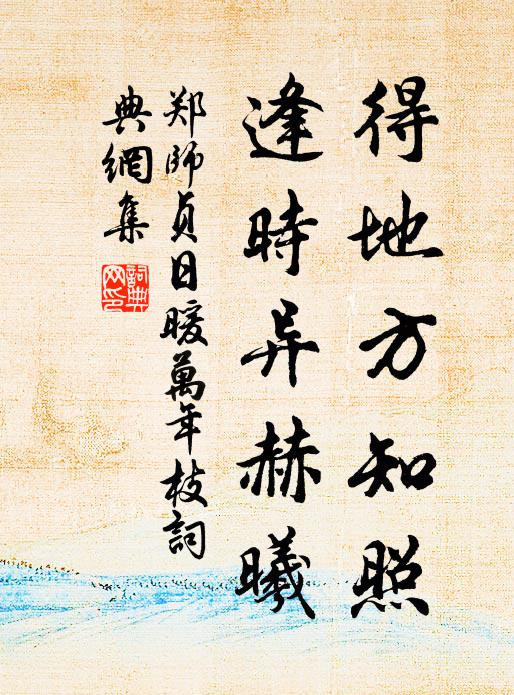 得地方知照
逢時异赫曦
郑師貞日暖萬年枝詞
典網集
詞典
网印